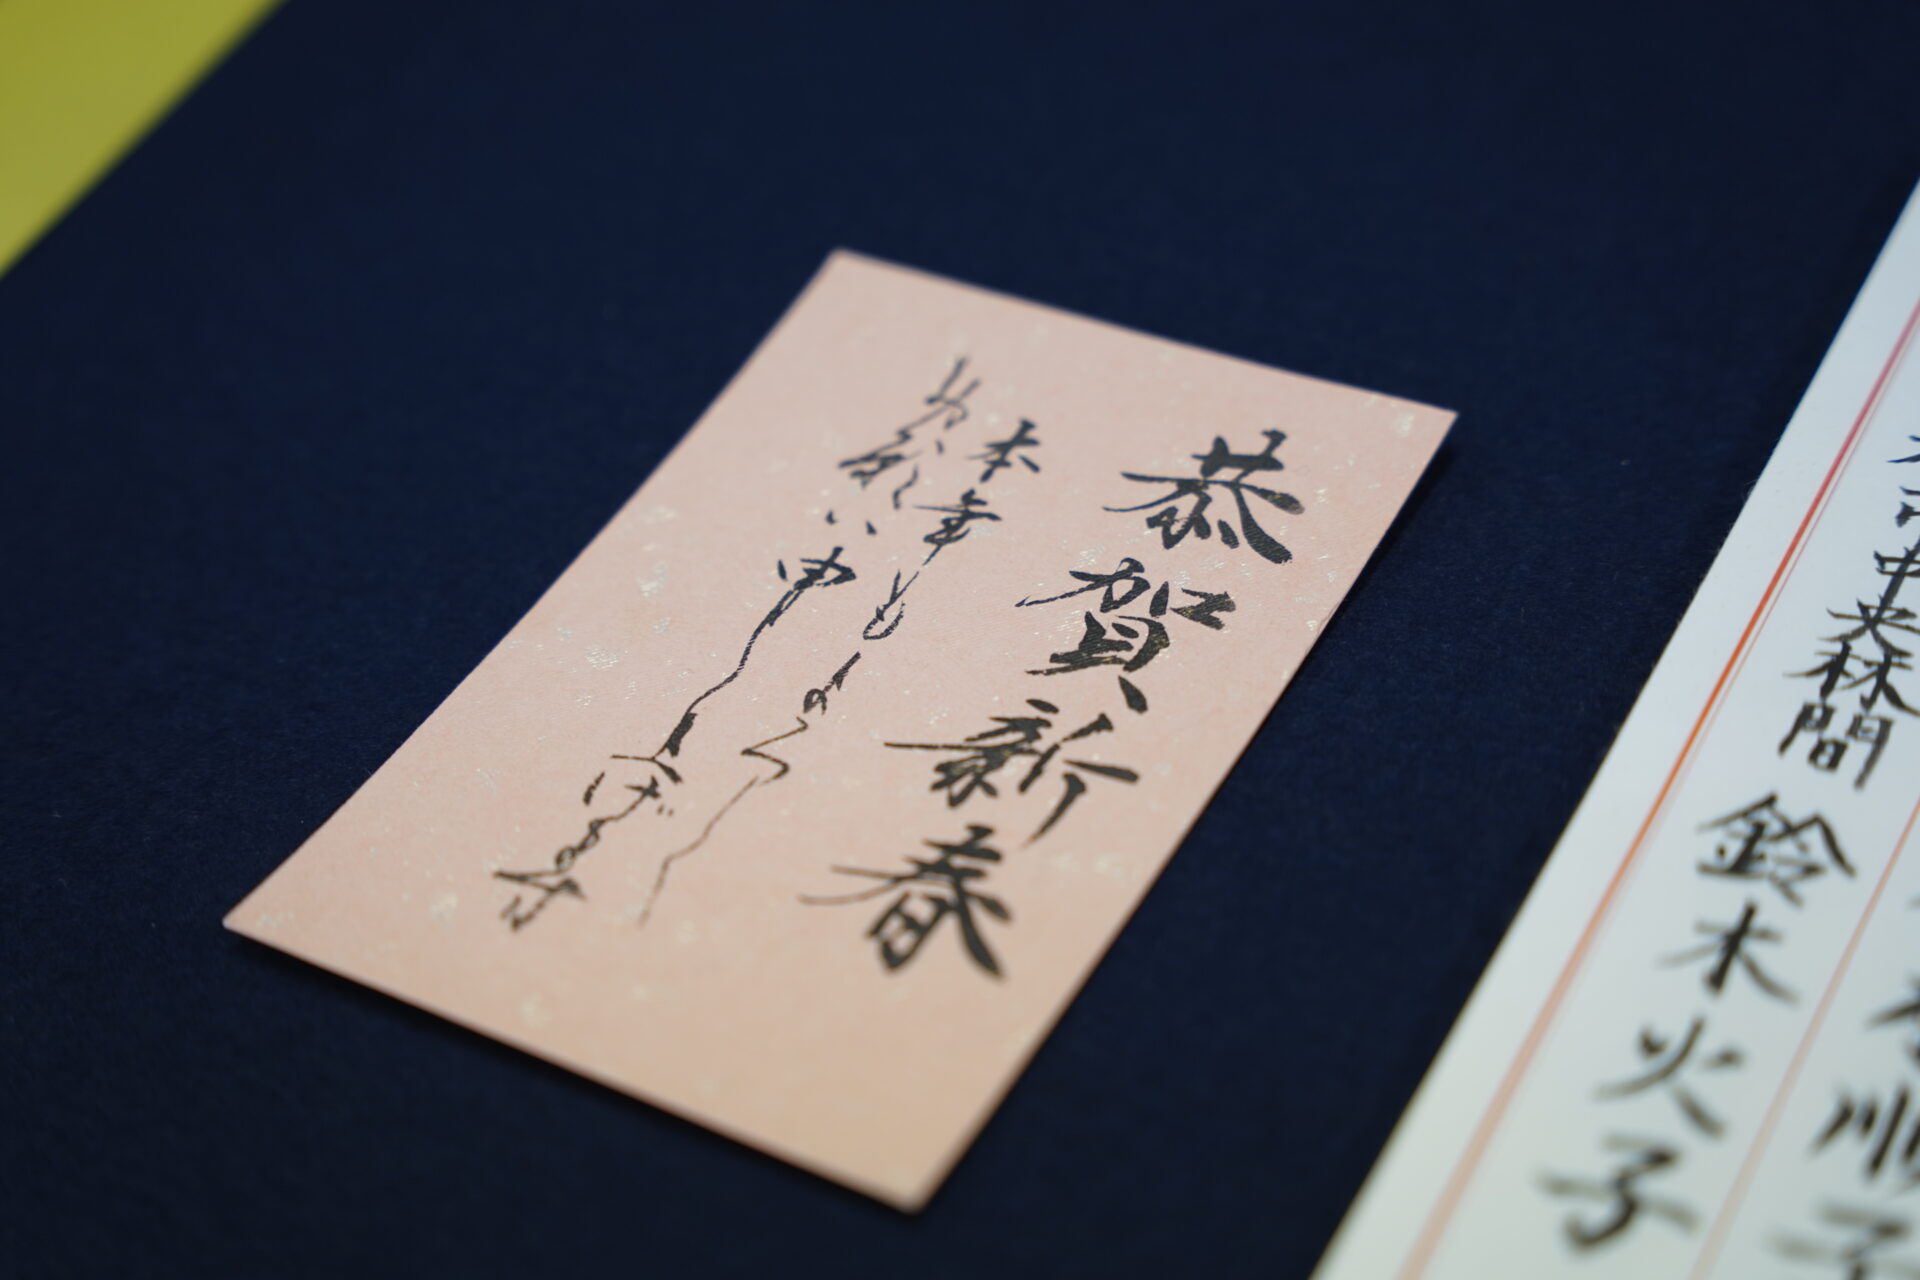 恭賀新春
本年もよろしく
お願い申し上げます
市中央林間
鈴木火子
順子